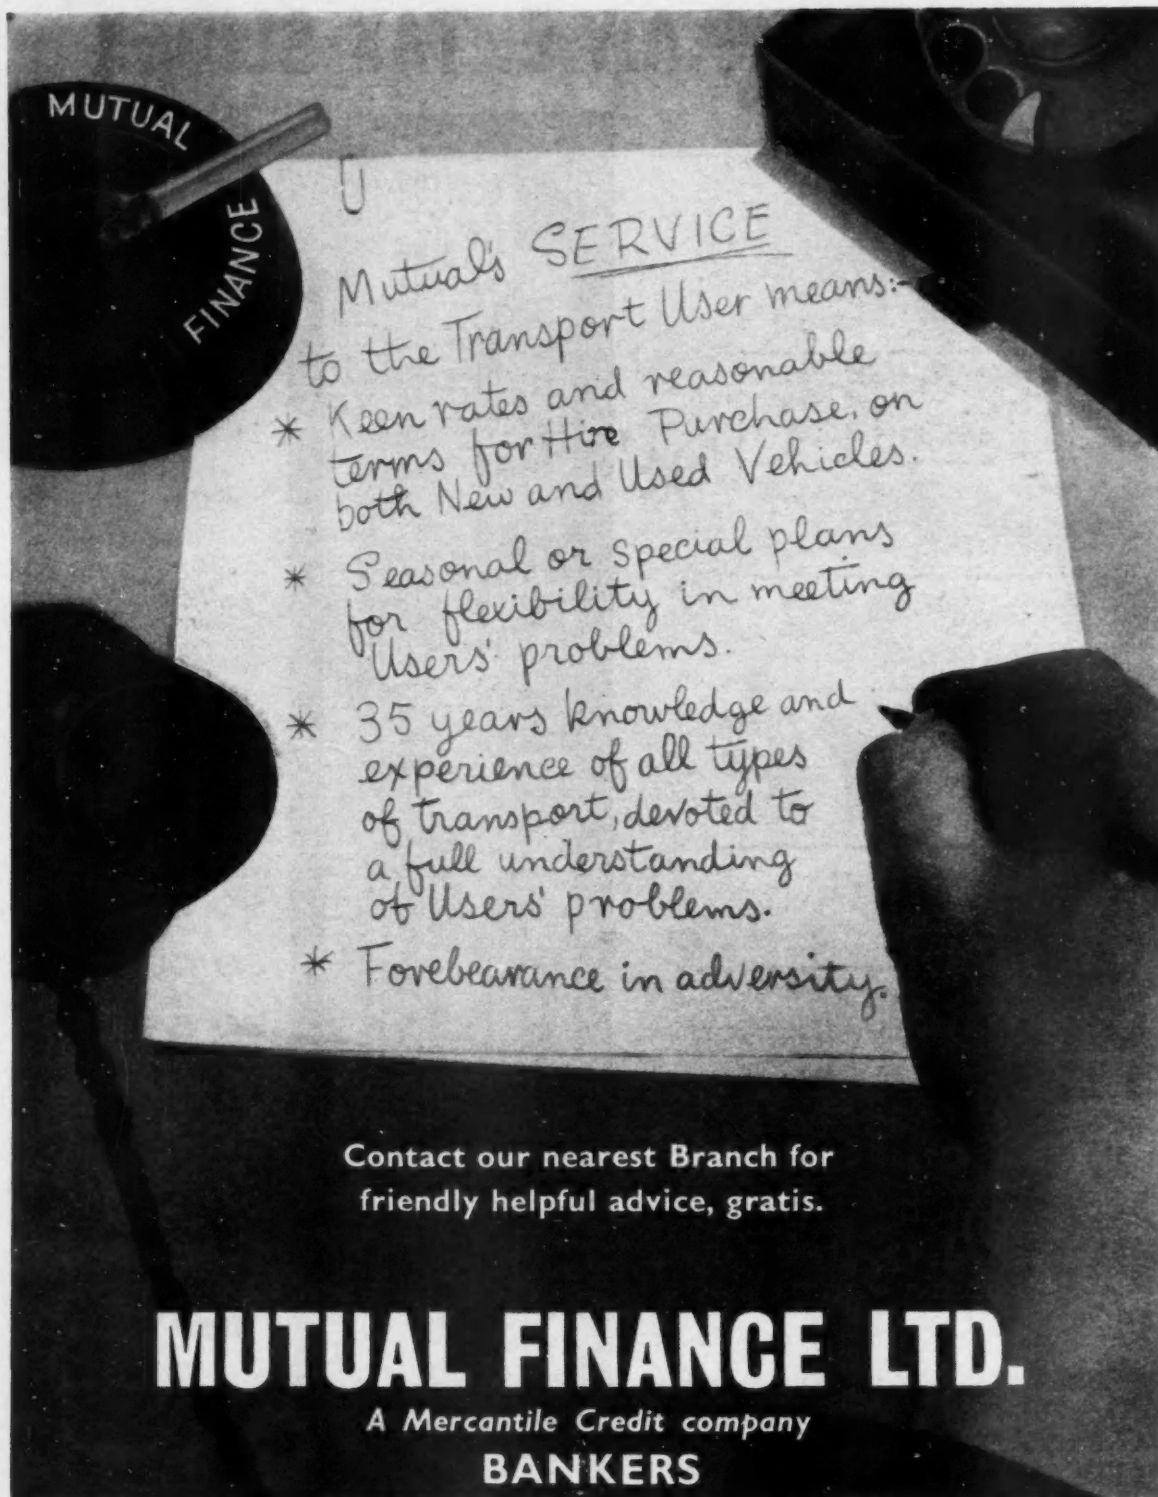 MUTUAL
FINANCE
Mutual's SERVICE
to the Transport User means:-
* Keen rates and reasonable
terms for Hire Purchase, on
both New and Used Vehicles.
* Seasonal or special plans
for flexibility in meeting
Users' problems.
* 35 years knowledge and
experience of all types
of transport, devoted to
a full understanding
of Users' problems.
* Forebearance in adversity.
Contact our nearest Branch for
friendly helpful advice, gratis.
MUTUAL FINANCE LTD.
A Mercantile Credit company
BANKERS